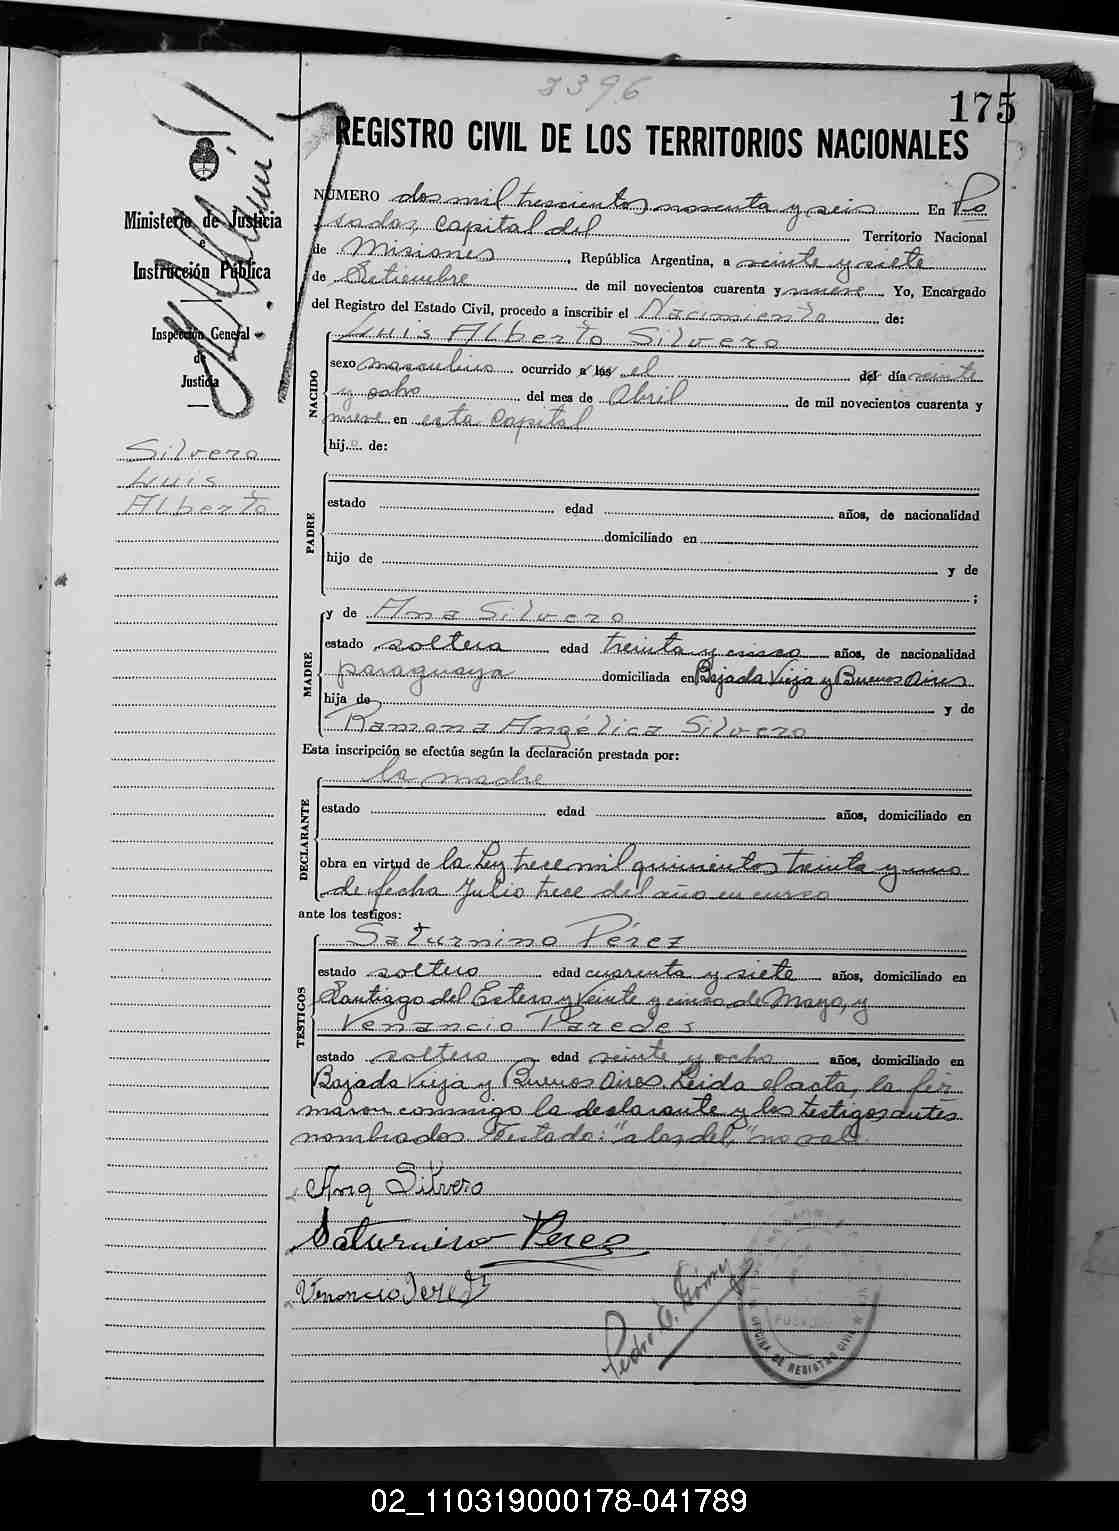 2396
175
REGISTRO CIVIL DE LOS TERRITORIOS NACIONALES
Ministerio de Justicia
e
Instrucción Pública
Inspección General
de
Justicia
Silvero
Luis
Alberto
NÚMERO dos mil trescientos noventa y seis En Po
sadas, capital del Territorio Nacional
de Misiones, República Argentina, a veinte y siete
de Setiembre de mil novecientos cuarenta y nueve. Yo, Encargado
del Registro del Estado Civil, procedo a inscribir el Nacimiento de:
NACIDO
Luis Alberto Silvero
sexo masculino ocurrido a las el del día veinte
y ocho del mes de Abril de mil novecientos cuarenta y
nueve en esta capital
hijo de:
PADRE
estado edad años, de nacionalidad
domiciliado en
hijo de y de
;
MADRE
y de Ana Silvero
estado soltera edad treinta y cinco años, de nacionalidad
paraguaya domiciliada en Bajada Vieja y Buenos Aires
hija de y de
Ramona Angélica Silvero
Esta inscripción se efectúa según la declaración prestada por:
DECLARANTE
la madre
estado edad años, domiciliado en
obra en virtud de la Ley trece mil quinientos treinta y uno
de fecha Julio trece del año en curso
ante los testigos:
TESTIGOS
Saturnino Pérez
estado soltero edad cuarenta y siete años, domiciliado en
Santiago del Estero y Veinte y cinco de Mayo, y
Venancio Paredes
estado soltero edad veinte y ocho años, domiciliado en
Bajada Vieja y Buenos Aires. Leida el acta, la fir
maron conmigo la declarante y los testigos antes
nombrados. Testado: "a las, del," no vale.
Ana Silvero
Saturnino Perez
Venancio
Pedro
OFICINA DE REGISTRO CIVIL
02_110319000178-041789